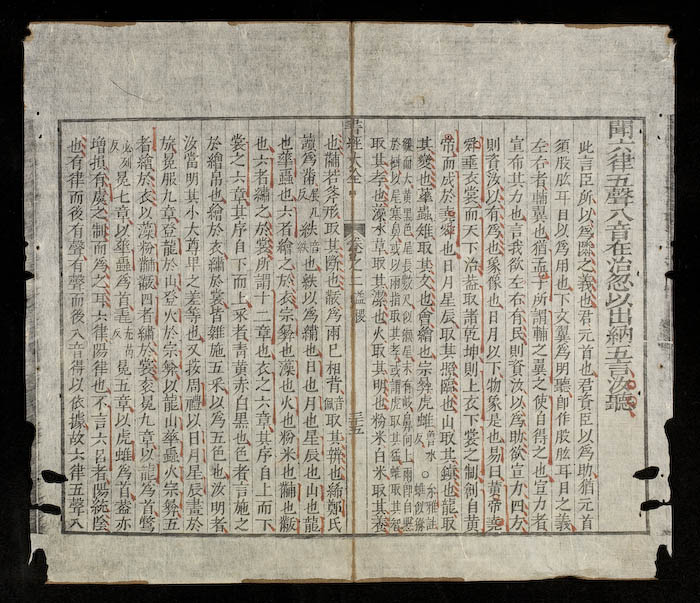 聞六律五聲八音在治忽以出納五言汝聽
此言臣所以爲鄰之義也君元首也君資臣以爲助猶元首
須股肱耳目以爲用也下文翼爲明聽即作股肱耳目之義
左右者輔翼也猶孟子所謂輔之翼之使自得之也宣力者
宣布其力也言我欲左右有民則資汝以爲助欲宣力四方
則資汝以有爲也象像也日月以下物象是也易曰黃帝堯
舜垂衣裳而天下治蓋取諸乾坤則上衣下裳之制創自黃
帝而成於堯舜也日月星辰取其照臨也山取其鎮也龍取
其變也華蟲雉取其文也會繪也宗彝虎蜼
取其孝也藻水草取其潔也火取其明也粉米白米取其養
也黼若斧形取其斷也黻爲兩已相背取其辨也絺鄭氏
讀爲黹紩也紩以爲繡也日也月也星辰也山也龍
也華蟲也六者繪之於衣宗彝也藻也火也粉米也黼也黻
也六者繡之於裳所謂十二章也衣之六章其序自上而下
裳之六章其序自下而上采者青黃赤白黑也色者言施之
於繒帛也繪於衣繡於裳皆雜施五采以爲五色也汝明者
汝當明其小大尊卑之差等也又按周制以日月星辰畫於
旂冕服九章登龍於山登火於宗彝以龍山華蟲火宗彝五
者繪於衣以藻粉米黼黻四者繡於裳袞冕九章以龍爲首鷩
冕七章以華蟲爲首毳冕五章以虎蜼爲首蓋亦
增損有虞之制而爲之耳六律陽律也不言六呂者陽統陰
也有律而後有聲有聲而後八音得以依據故六律五聲八
書經大全
卷之二
三十五